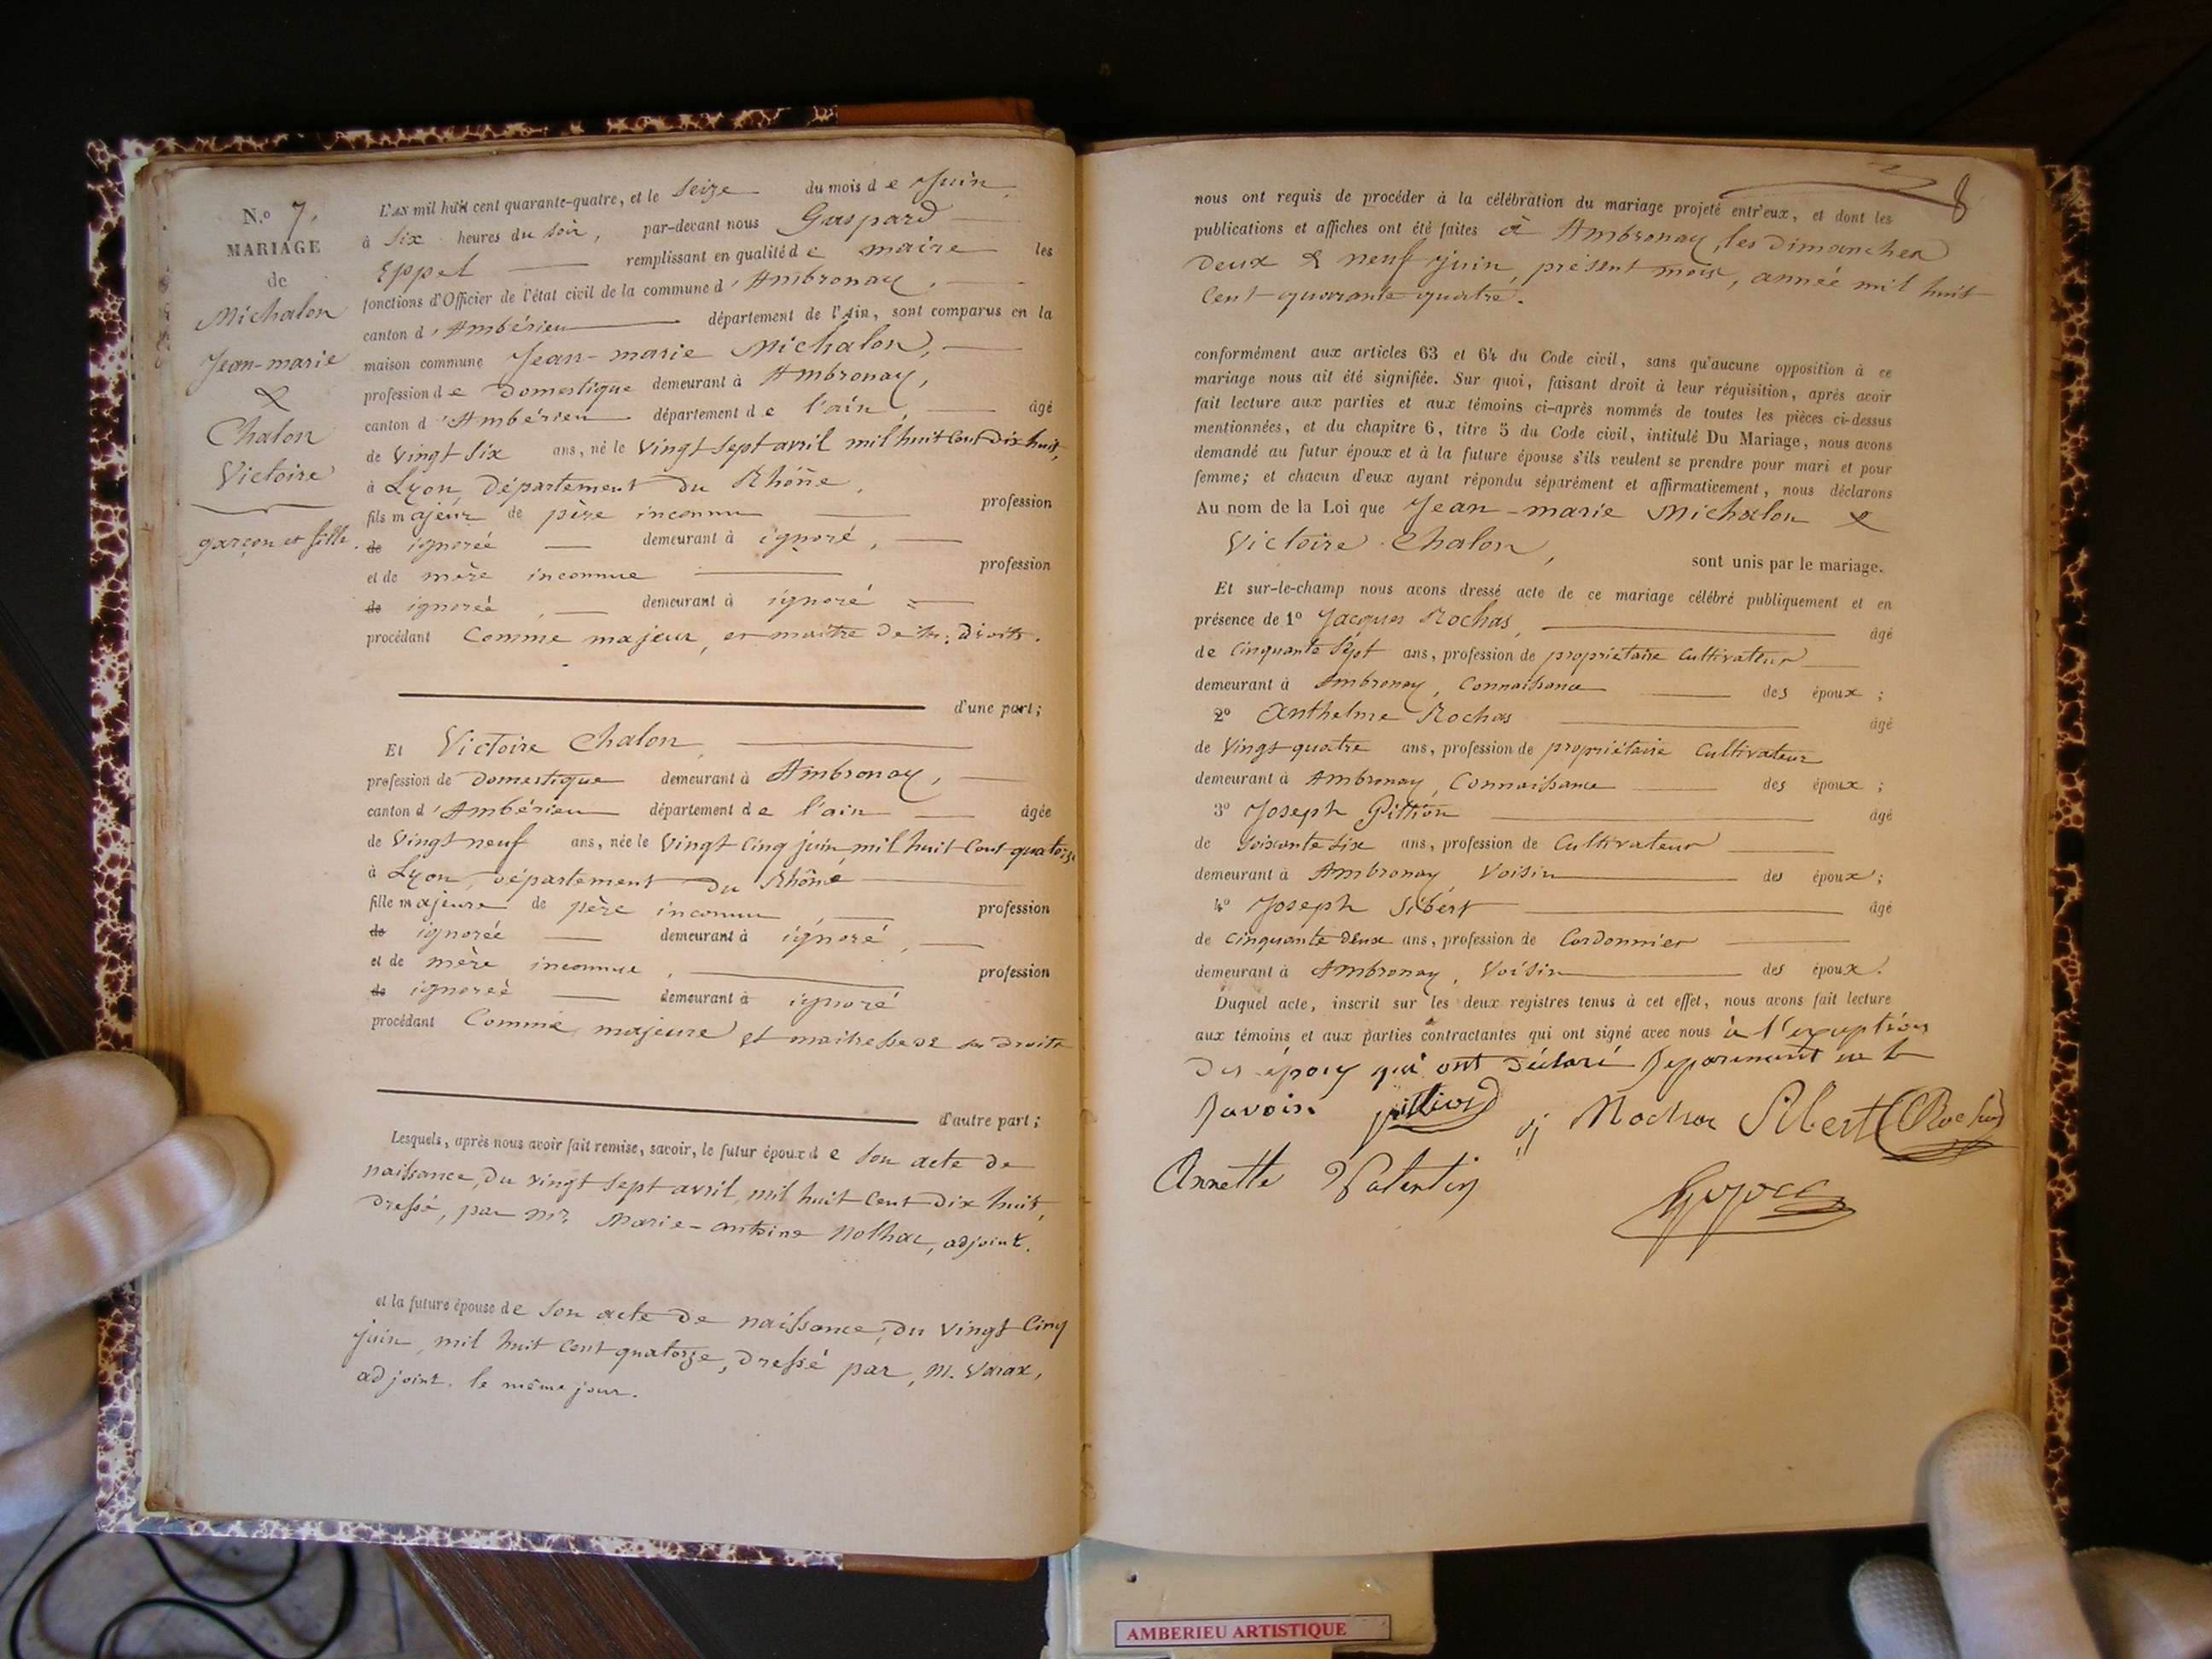 N.º 7.
MARIAGE
de
Michalon
Jean-marie
&
Chalon
Victoire
garçon et fille.
L'AN mil huit cent quarante-quatre, et le seize du mois de Juin
à six heures du soir, par-devant nous Gaspard
Eppel remplissant en qualité de maire les
fonctions d'Officier de l'état civil de la commune d'Ambronay,
canton d'Ambérieu département de l'Ain, sont comparus en la
maison commune Jean-marie Michalon,
profession de Domestique demeurant à Ambronay,
canton d'Ambérieu département de l'ain, âgé
de vingt six ans, né le vingt sept avril mil huit cent dix huit,
à Lyon, Département du Rhône,
fils majeur de père inconnu profession
de ignoréé demeurant à ignoré,
et de mère inconnue profession
de ignoréé, demeurant à ignoré
procédant Comme majeur, et maître de ses droits.
d'une part;
Et Victoire Chalon,
profession de Domestique demeurant à Ambronay,
canton d'Ambérieu département de l'ain âgée
de vingt neuf ans, née le vingt cinq juin mil huit cent quatorze
à Lyon, département du Rhône
fille majeure de père inconnu, profession
de ignoréé demeurant à ignoré,
et de mère inconnue, profession
de ignoréé demeurant à ignoré
procédant Comme majeure et maitresse de ses droits
d'autre part;
Lesquels, après nous avoir fait remise, savoir, le futur époux de son acte de
naissance, du vingt sept avril, mil huit cent dix huit,
dressé, par Mr. Marie-antoine Nolhac, adjoint.
et la future épouse de son acte de naissance, du vingt cinq
juin, mil huit cent quatorze, dressé par, M. Varax,
adjoint. le même jour.
8
nous ont requis de procéder à la célébration du mariage projeté entr'eux, et dont les
publications et affiches ont été faites à Ambronay, les Dimanches
deux & neuf juin, présent mois, année mil huit
cent-quarante quatre.
conformément aux articles 63 et 64 du Code civil, sans qu'aucune opposition à ce
mariage nous ait été signifiée. Sur quoi, faisant droit à leur réquisition, après avoir
fait lecture aux parties et aux témoins ci-après nommés de toutes les pièces ci-dessus
mentionnées, et du chapitre 6, titre 5 du Code civil, intitulé Du Mariage, nous avons
demandé au futur époux et à la future épouse s'ils veulent se prendre pour mari et pour
femme; et chacun d'eux ayant répondu séparément et affirmativement, nous déclarons
Au nom de la Loi que Jean-marie Michalon &
Victoire Chalon, sont unis par le mariage.
Et sur-le-champ nous avons dressé acte de ce mariage célébré publiquement et en
présence de 1º Jacques Rochas, âgé
de cinquante sept ans, profession de propriétaire cultivateur
demeurant à Ambronay, connaissance des époux;
2º Anthelme Rochas âgé
de vingt quatre ans, profession de propriétaire cultivateur
demeurant à Ambronay, connaissance des époux;
3º Joseph Pittion âgé
de soixante six ans, profession de Cultivateur
demeurant à Ambronay, voisin des époux;
4º Joseph Sibert âgé
de cinquante deux ans, profession de Cordonnier
demeurant à Ambronay, voisin des époux.
Duquel acte, inscrit sur les deux registres tenus à cet effet, nous avons fait lecture
aux témoins et aux parties contractantes qui ont signé avec nous à l'exception
des époux qui ont déclaré séparément ne le
savoir. pittion j Rochas Sibert Rochas
Annette Valentin
AMBERIEU ARTISTIQUE